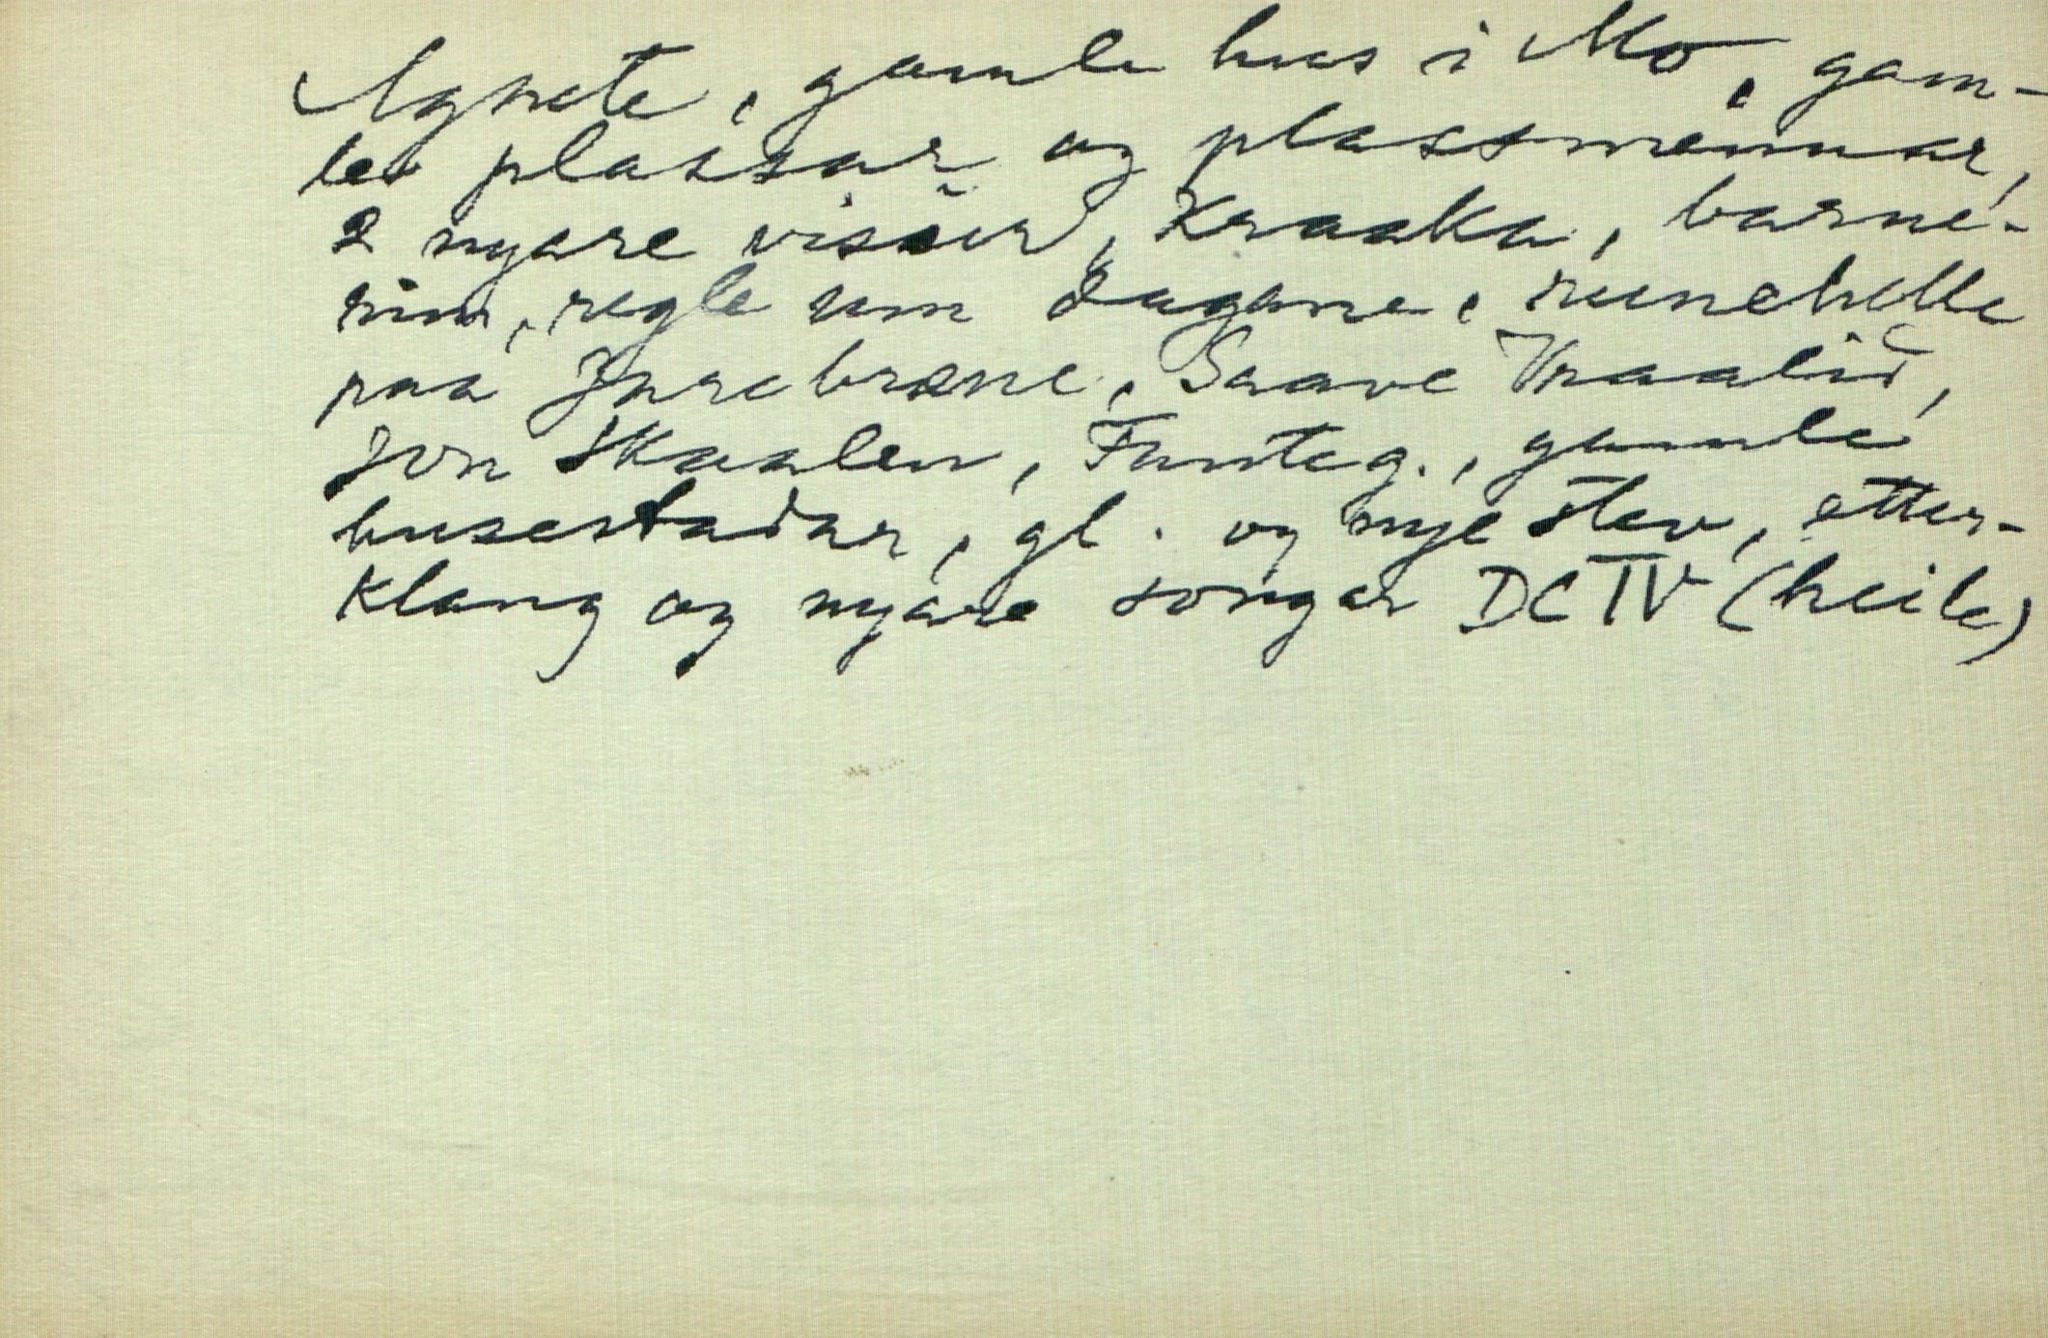 Agnete, gamle hus i Mo, gam-
le plassar og plassmennar,
2 nyare visur, Kraaka, barne-
rim, regle um dagane, runehelle
paa Jurebrone, Saave Vraalid,
Jon Skaalen, Funteg., gamle
busestadar, gl. og nye stev, etter-
klang og nyare songar DC IV (heile)